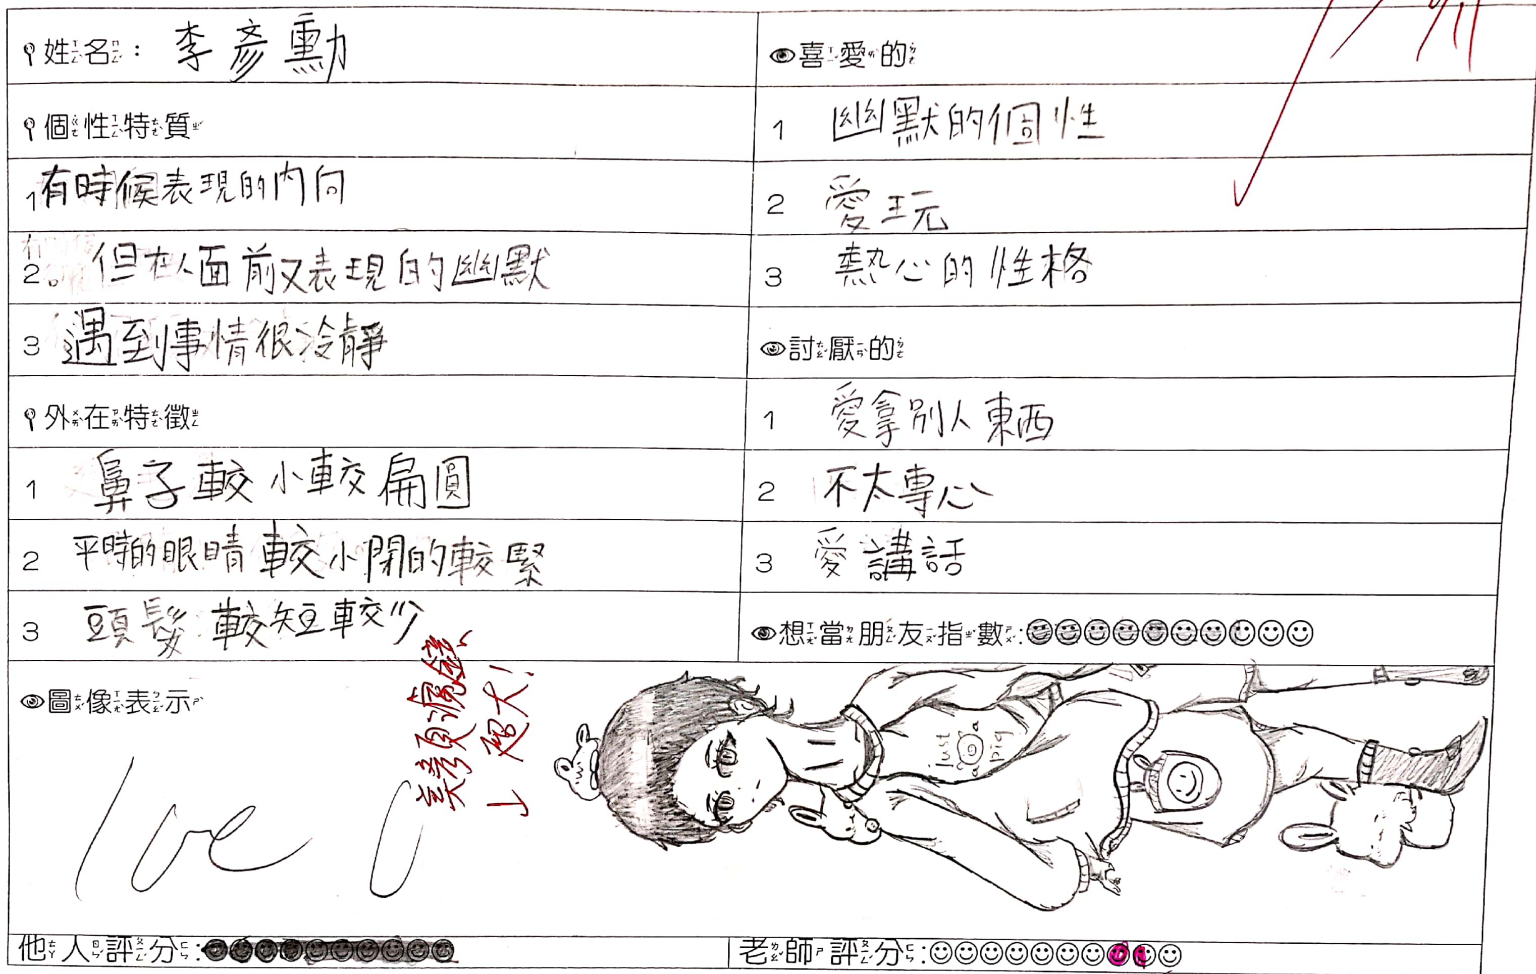 姓名：李彥勳
個性特質
1 有時候表現的內向
2 但在人面前又表現的幽默
3 遇到事情很冷靜
外在特徵
1 鼻子較小較扁圓
2 平時的眼睛較小閉的較緊
3 頭髮較短較少
喜愛的
1 幽默的個性
2 愛玩
3 熱心的性格
討厭的
1 愛拿別人東西
2 不太專心
3 愛講話
想當朋友指數:
圖像表示
love
超大!
just
pig
他人評分:
老師評分: